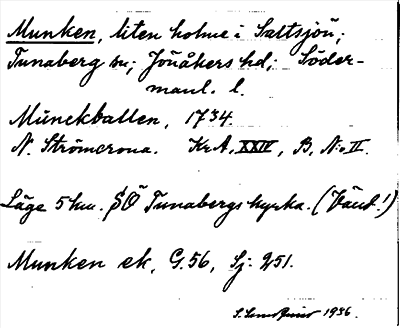 Munken, liten holme i Saltsjön;
Tunaberg sn; Jönåkers hd; Söder-
manl. l.
Munckballen, 1734.
N. Strömcrona. KrA, XXIV, B, N:o II.
Läge 5 km. SÖ Tunabergs kyrka. (Vänd!)
Munken ek, G. 56, Sj: 251.
1936.